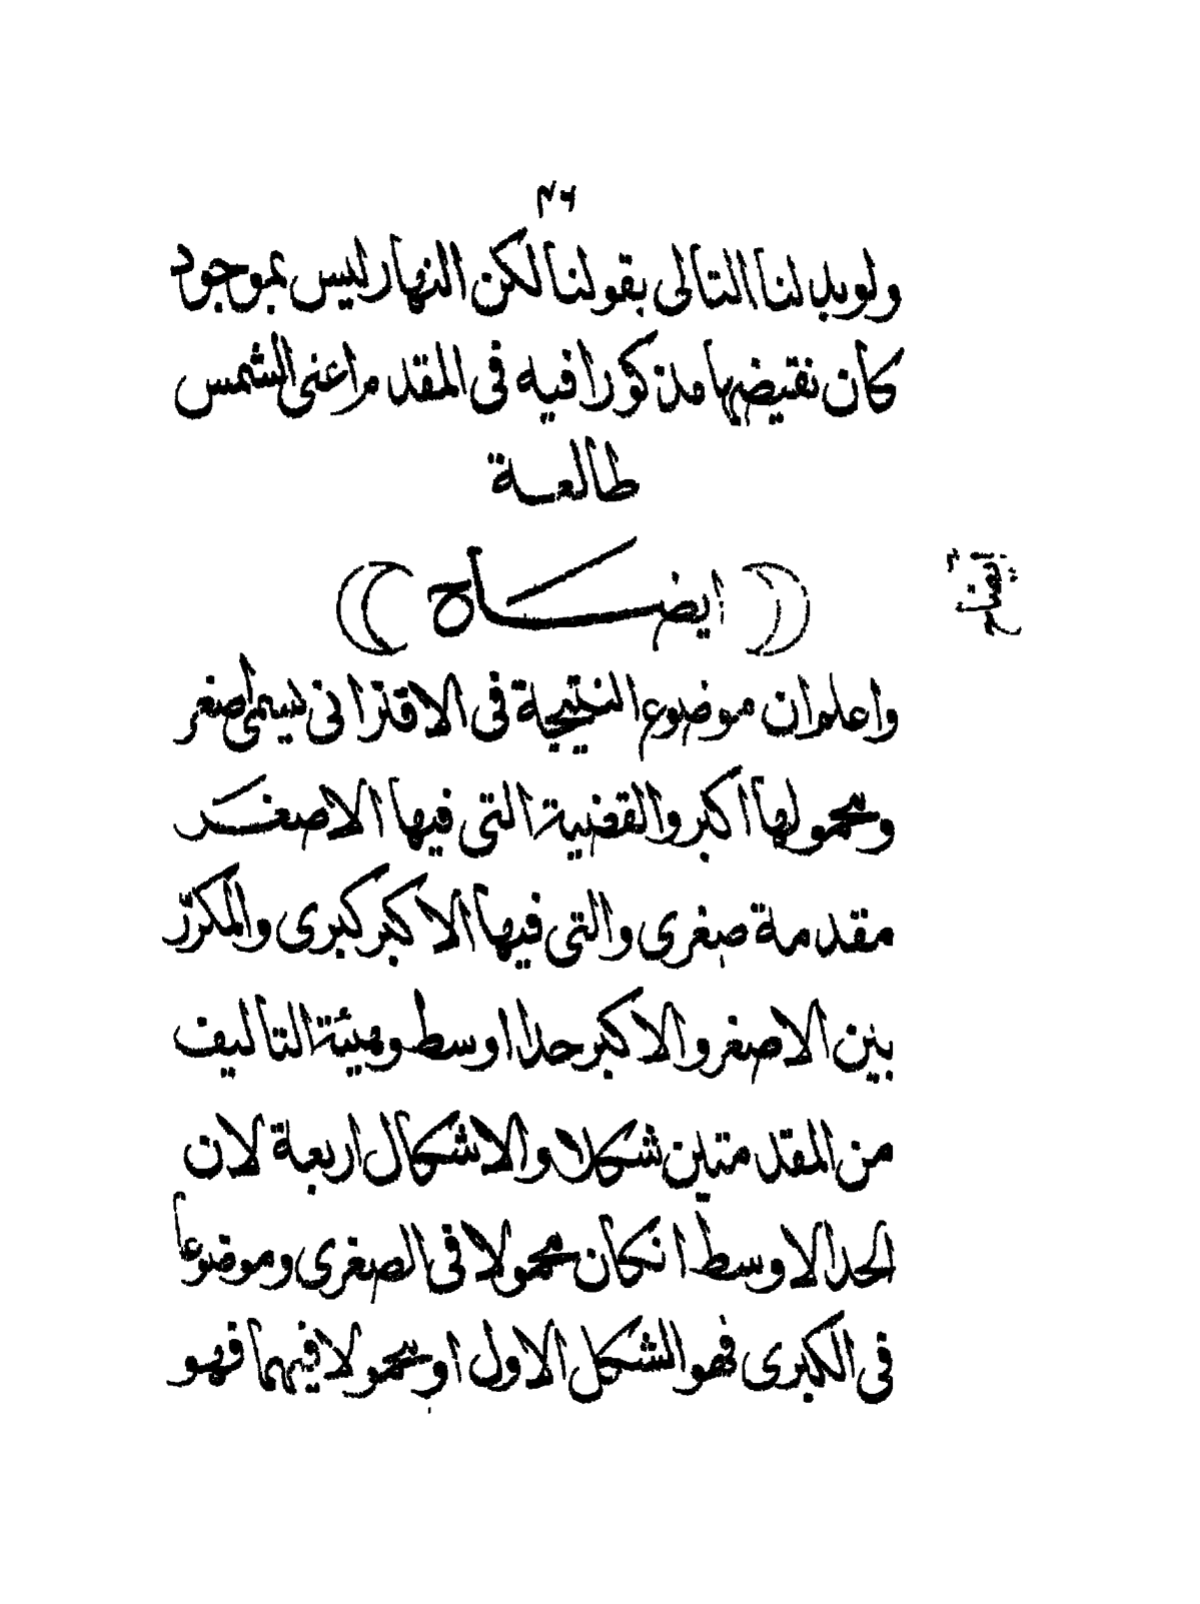 ٤٦
ولوبدلنا التالى بقولنا لكن النهار ليس بموجود
كان نقيضها مذكورا فيه فى المقدم اعنى الشمس
طالعة
ايضاح
ايضاح
واعلم ان موضوع النتيجة فى الاقترانى يسمى اصغر
ومحمولها اكبر والقضية التى فيها الاصغر
مقدمة صغرى والتى فيها الاكبر كبرى والمكرّر
بين الاصغر والاكبر حدا اوسط وهيئة التاليف
من المقدمتين شكلا والاشكال اربعة لان
الحد الاوسط ان كان محمولا فى الصغرى وموضوعا
فى الكبرى فهو الشكل الاول او محمولا فيهما فهو